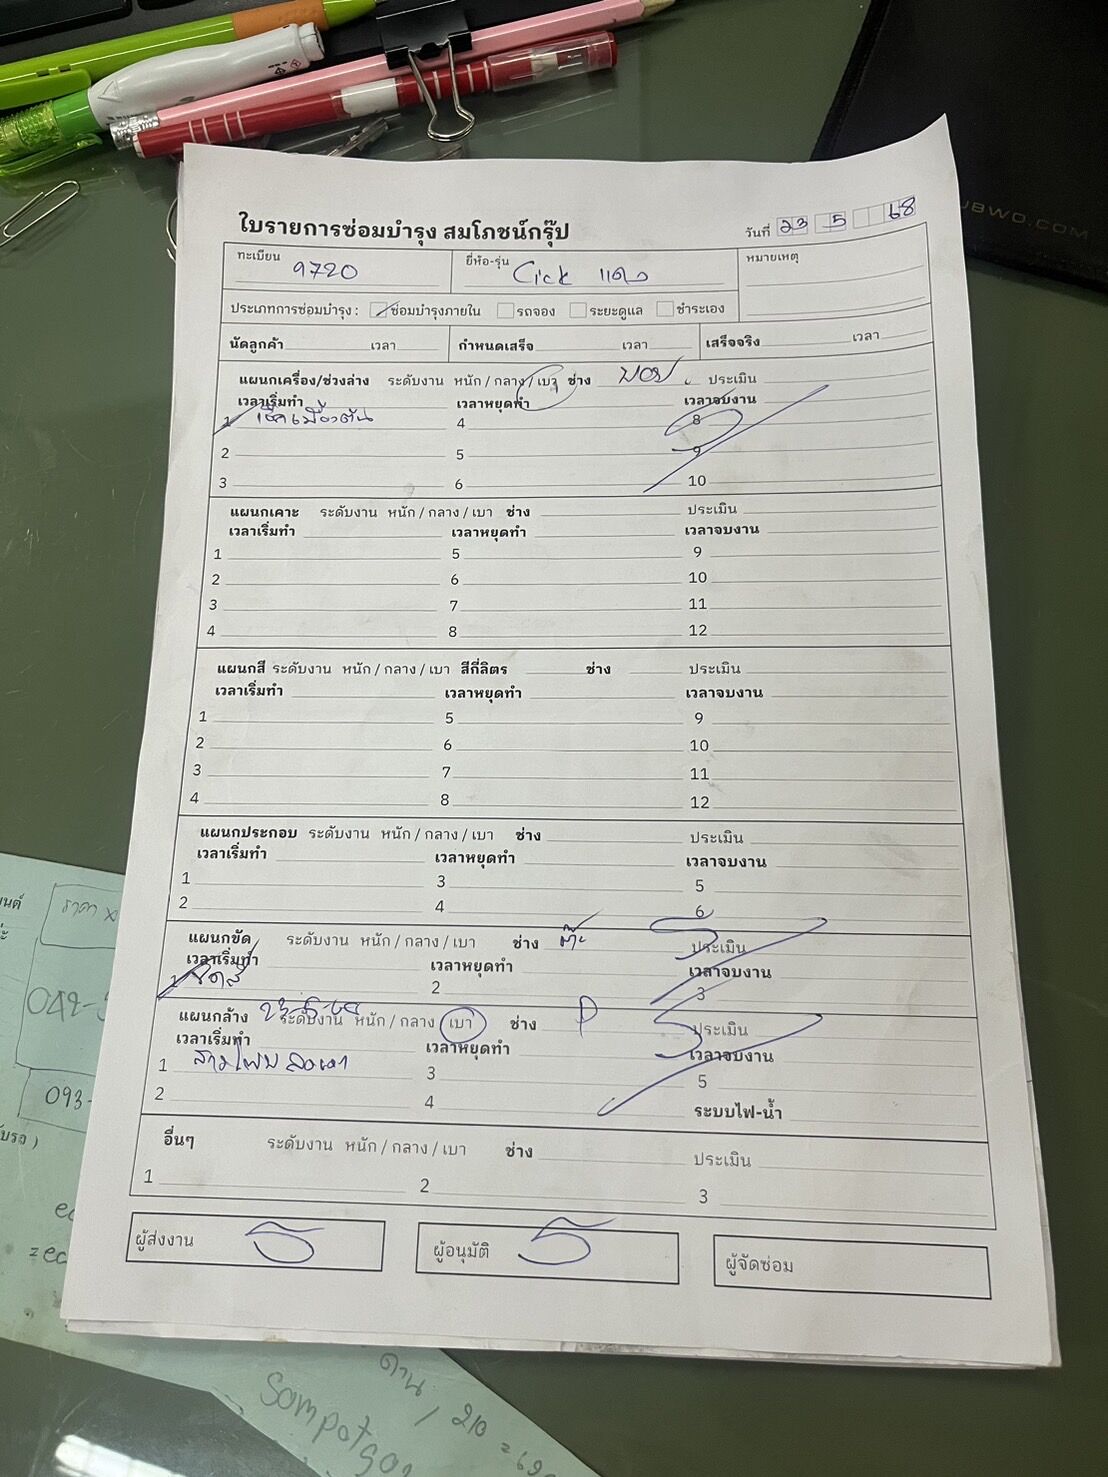 ใบรายการซ่อมบำรุง สมโภชน์กรุ๊ป
วันที่ 23 5 68
ทะเบียน 9720 ยี่ห้อ-รุ่น Cick แดง หมายเหตุ
ประเภทการซ่อมบำรุง : ซ่อมบำรุงภายใน รถจอง ระยะดูแล ชำระเอง
นัดลูกค้า เวลา กำหนดเสร็จ เวลา เสร็จจริง เวลา
แผนกเครื่อง/ช่วงล่าง ระดับงาน หนัก / กลาง / เบา ช่าง บอย ประเมิน
เวลาเริ่มทำ เวลาหยุดทำ เวลาจบงาน
1 เช็คเบื้องต้น 4 8
2 5 9
3 6 10
แผนกเคาะ ระดับงาน หนัก / กลาง / เบา ช่าง ประเมิน
เวลาเริ่มทำ เวลาหยุดทำ เวลาจบงาน
1 5 9
2 6 10
3 7 11
4 8 12
แผนกสี ระดับงาน หนัก / กลาง / เบา สีกี่ลิตร ช่าง ประเมิน
เวลาเริ่มทำ เวลาหยุดทำ เวลาจบงาน
1 5 9
2 6 10
3 7 11
4 8 12
แผนกประกอบ ระดับงาน หนัก / กลาง / เบา ช่าง ประเมิน
เวลาเริ่มทำ เวลาหยุดทำ เวลาจบงาน
1 3 5
2 4 6
แผนกขัด ระดับงาน หนัก / กลาง / เบา ช่าง ประเมิน
เวลาเริ่มทำ เวลาหยุดทำ เวลาจบงาน
1 ขัดสี 2 3
แผนกล้าง 23-5-68 ระดับงาน หนัก / กลาง / เบา ช่าง P ประเมิน
เวลาเริ่มทำ เวลาหยุดทำ เวลาจบงาน
1 3 5
2 4 ระบบไฟ-น้ำ
อื่นๆ ระดับงาน หนัก / กลาง / เบา ช่าง ประเมิน
1 2 3
ผู้ส่งงาน ผู้อนุมัติ ผู้จัดซ่อม
093-